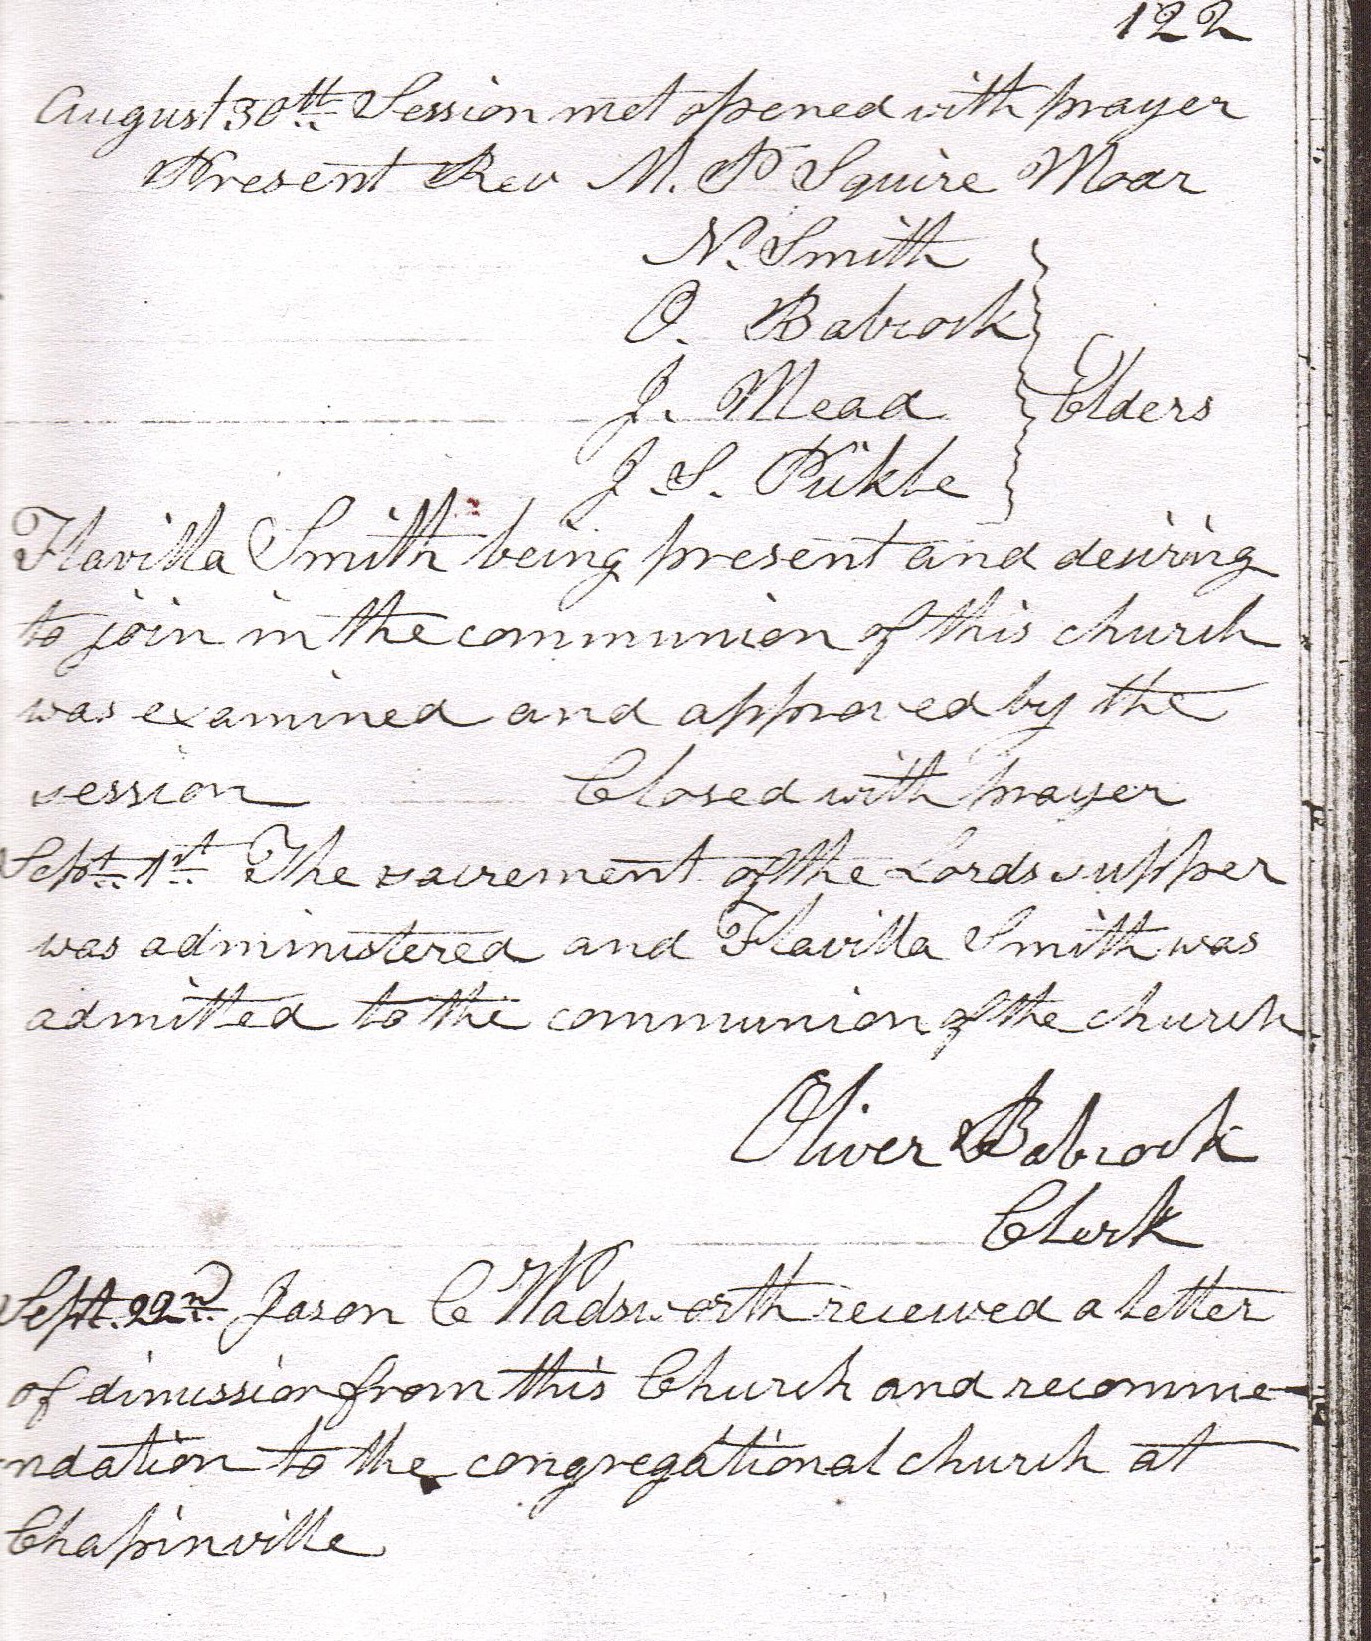 122
August 30th Session met opened with prayer
Present Rev M. P Squire Moar
N. Smith
O. Babcock
J. Mead Elders
J. S. Pickle
Flavilla Smith being present and desiring
to join in the communion of this church
was examined and approved by the
session Closed with prayer
Sept. 1st. The sacrement of the Lords supper
was administered and Flavilla Smith was
admitted to the communion of the church.
Oliver Babcock
Clerk
Sept. 22nd. Jason C Wadsworth received a letter
of dimission from this Church and recomme-
ndation to the congregational church at
Chapinville